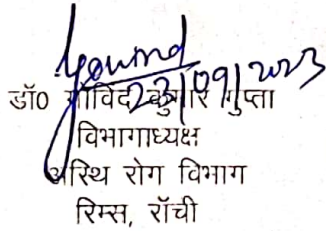 Govind
23/09/2023
डॉ0 गोविंद कुमार गुप्ता
विभागाध्यक्ष
अस्थि रोग विभाग
रिम्स, राँची